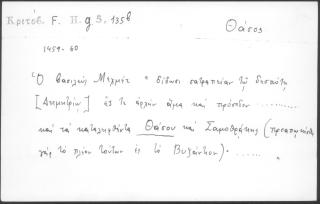 Κριτόβ. F. H. g 5. 135b
Θάσος
1459-60
Ὁ βασιλεὺς Μεχμὲτ " δίδωσι σατραπείαν τῷ δεσπότῃ
[Δημητρίῳ] ἐς τε ἀρχὴν ἅμα καὶ πρόσοδον ............
καὶ τὰ καταλειφθέντα Θάσου καὶ Σαμοθρᾴκης (
γὰρ τὸ πλέον τούτων ἐς τὸ Βυζάντιον). ...... "